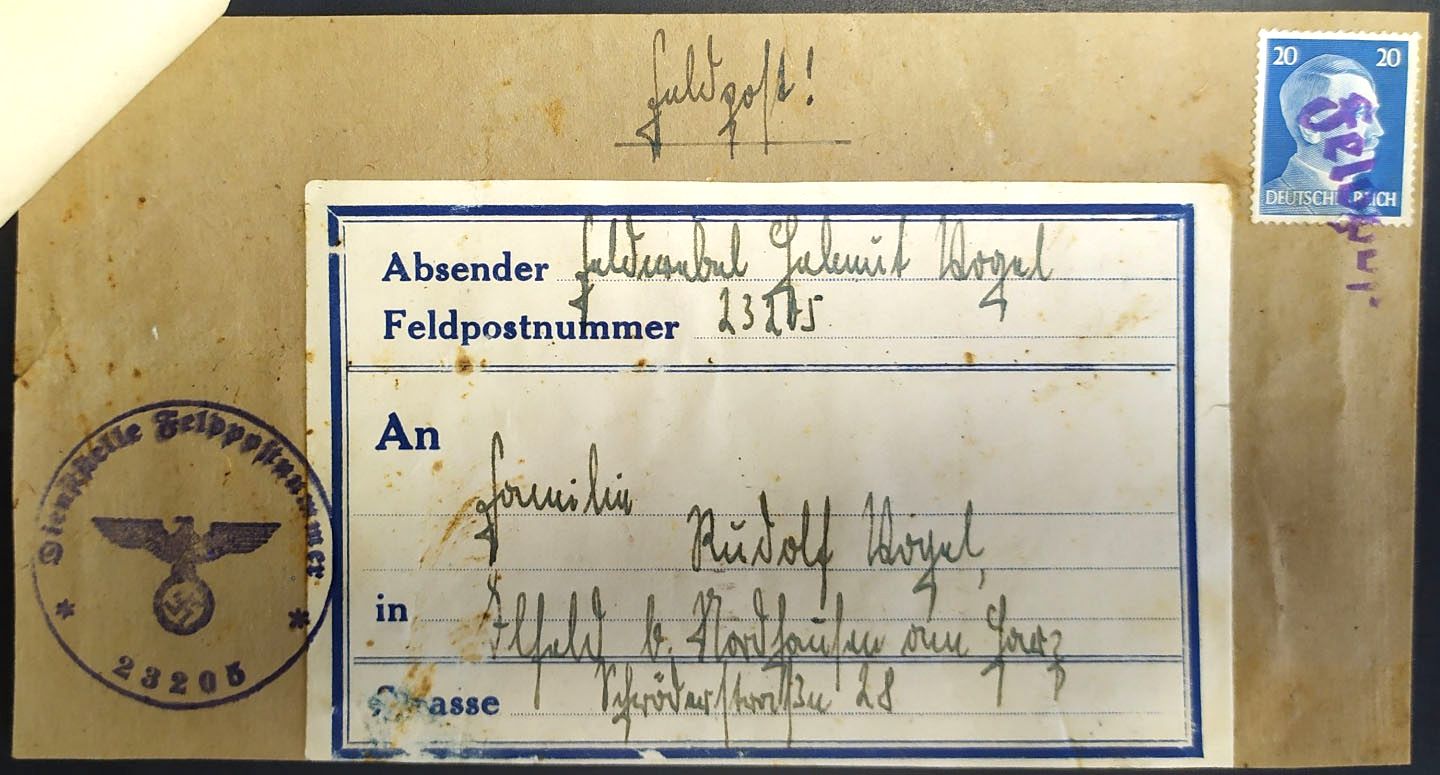 Feldpost!
20 20
DEUTSCHES REICH
Feldpost
Absender Feldwebel Helmut Vogel
Feldpostnummer 23205
An
Familie
Rudolf Vogel,
in Ilfeld b. Nordhausen am Harz
Strasse Schröderstraße 28
Dienststelle Feldpostnummer
* *
23205